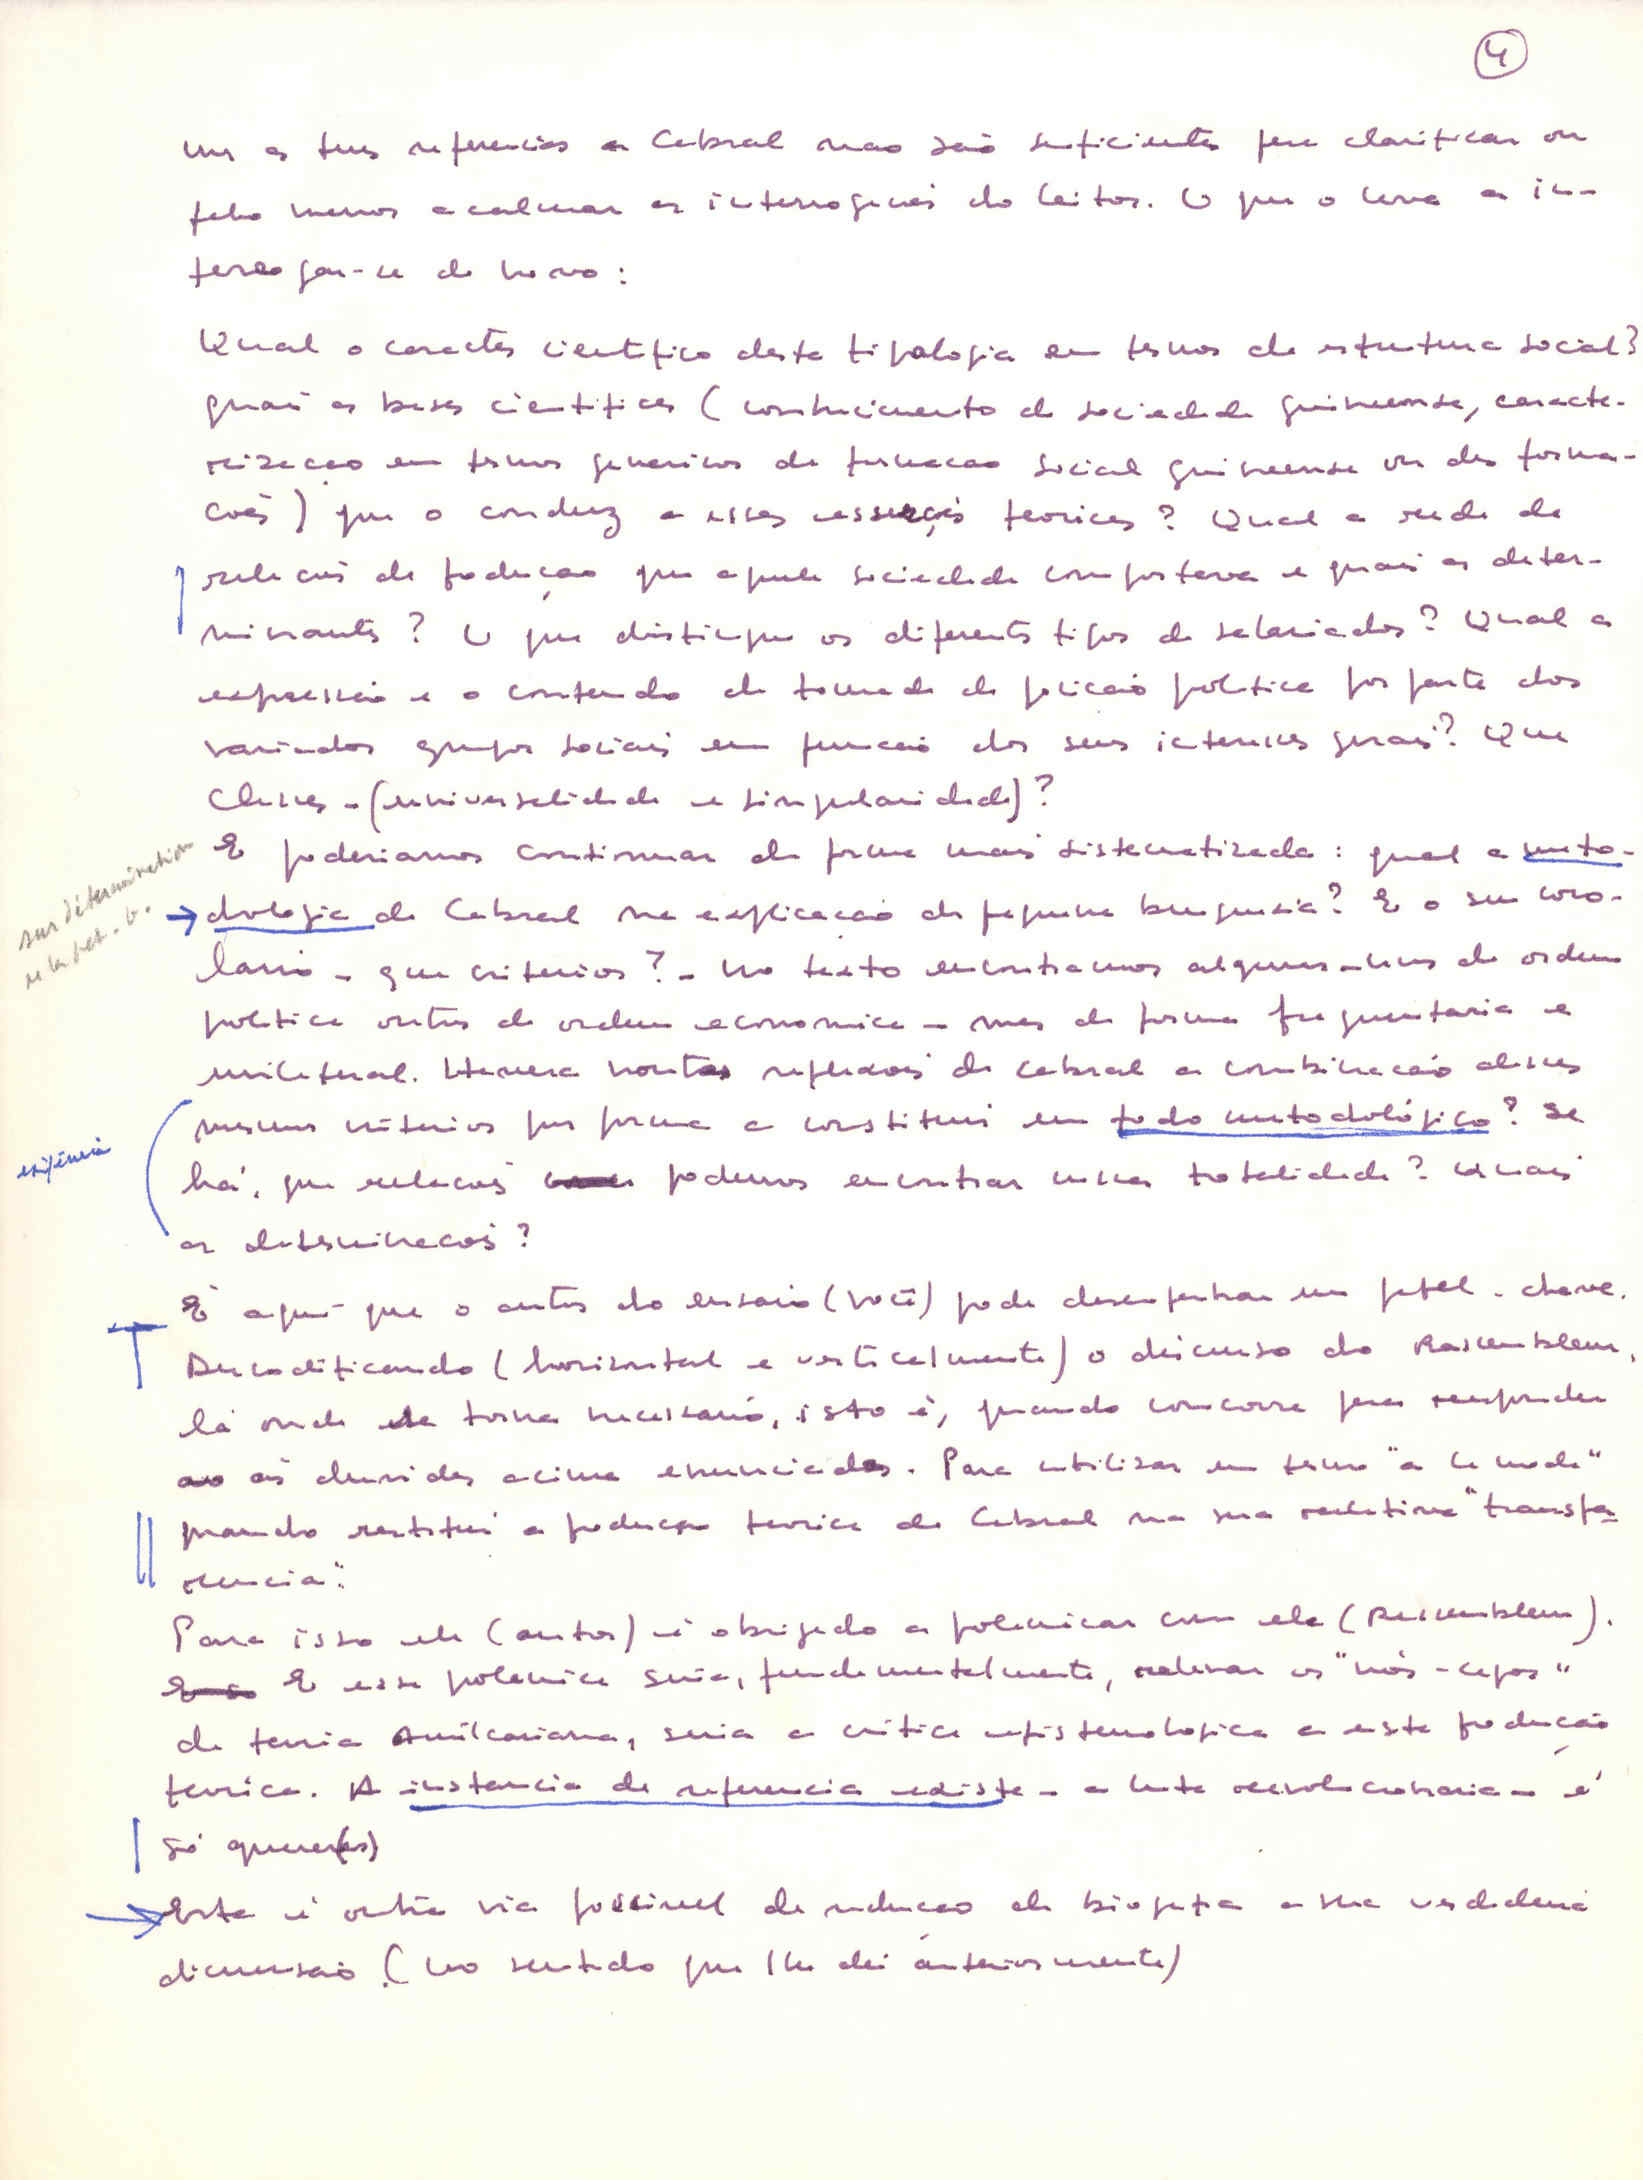 4
as tuas referencias a Cabral nao são suficientes para clarificar ou
pelo menos acalmar as interrogacoes do leitor. O que o leva a in-
terrogar-se de novo:
Qual o caracter cientifico desta tipologia em termos de estrutura social?
quais as bases cientificas (conhecimento da sociedade guineense, caracte-
rizacao em termos genericos da formacao social guineense ou das forma-
coes) que o conduz a esses teoricas? Qual a rede de
relacoes de producao que aquela sociedade comportava e quais as deter-
minantes? O que distingue os diferentes tipos de salariados? Qual a
expressão e o conteudo da tomada de posicao politica por parte dos
variados grupos sociais em funcao dos seus interesses gerais? Que
Classes - (universalidade e singularidade)?
E poderiamos continuar de forma mais sistematizada: qual a meto-
dologia de Cabral na explicacao da pequena burguesia? E o seu coro-
lario - que criterios? - No texto encontramos alguns - uns de ordem
politica outros de ordem economica - mas de forma fragmentaria e
unilateral. Havera noutras reflexoes de Cabral a combinacao desses
mesmos criterios por forma a constituir um todo metodológico? Se
há, que relacoes podemos encontrar nessa totalidade? Quais
as determinacoes?
É aqui que o autor do ensaio (você) pode desempenhar um papel-chave.
Descodificando (horizontal e verticalmente) o discurso do Rassemblem,
lá onde se torna necessario, isto é, quando concorre para responder
as duvidas acima enunciadas. Para utilizar um termo "a la mode"
quando restitui a producao teorica de Cabral na sua relativa "transpa-
rencia".
Para isso ele (autor) é obrigado a polemicar com ele (Rassemblem).
E essa polemica seria, fundamentalmente, relevar os "nós-cegos"
da teoria Amilcariana, seria a critica epistemologica a esta produção
teorica. A instancia de referencia existe - a luta revolucionaria - é
só querer(es)
Esta é outra via possivel de reducao da biografia a sua verdadeira
dimensao (no sentido que lhe dei anteriormente)
sur détermination
de la pet. b.
exigência